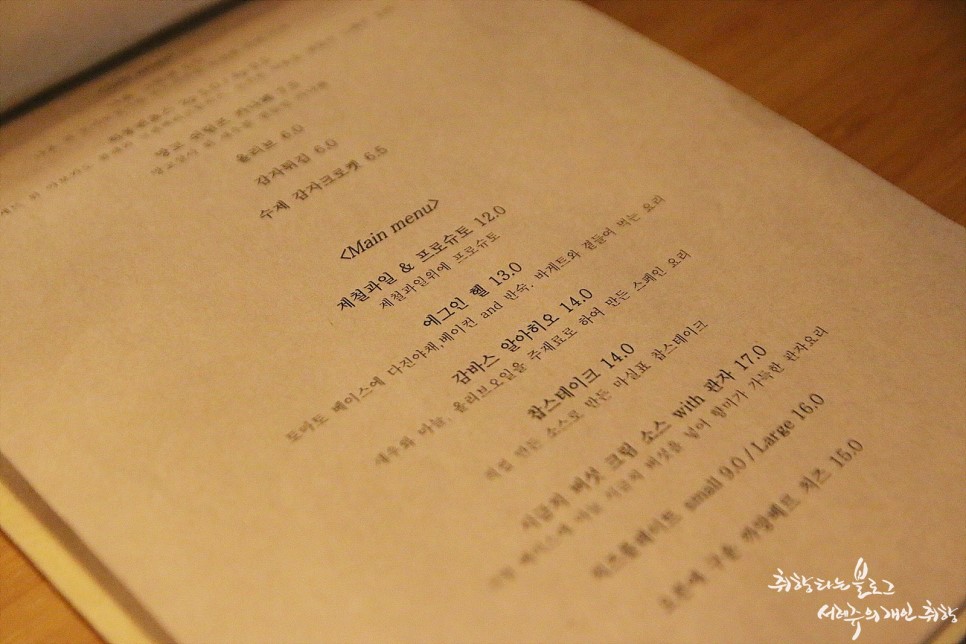 올리브 6.0
감자튀김 6.0
수제 감자크로켓 6.5
<Main menu>
제철과일 & 프로슈토 12.0
제철과일위에 프로슈토
에그인 헬 13.0
토마토 베이스에 다진야채,베이컨 and 반숙. 바게트와 곁들여 먹는 요리
감바스 알아히오 14.0
새우와 마늘, 올리브오일을 주재료로 하여 만든 스페인 요리
찹스테이크 14.0
직접 만든 소스로 만든 마실표 찹스테이크
시금치 버섯 크림 소스 with 관자 17.0
크림 베이스에 시금치 버섯을 넣어 향미가 가득한 관자요리
치즈플레이트 small 9.0 / Large 16.0
오븐에 구운 까망베르 치즈 15.0
취향타는 블로그
서현주의 개인 취향